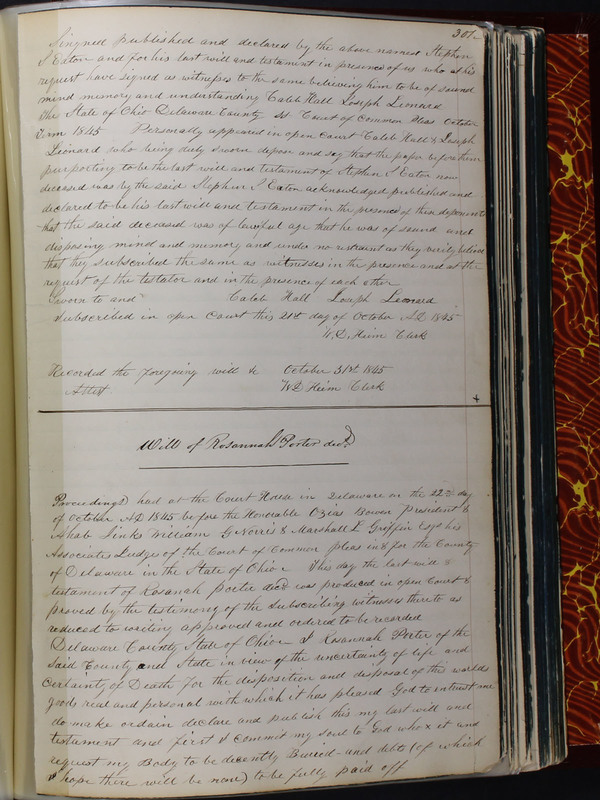 307
Singned published and declared by the above named Stephen
S Eaton and for his last will and testament in presence of us who at his
request have signed as witnesses to the same believing him to be of sound
mind memory and understanding Caleb Hall Joseph Leonard
The State of Ohio Delaware County SS Court of Common Pleas October
Term 1845 Personally appeared in open Court Caleb Hall & Joseph
Leonard who being duly sworn depose and say that the paper before them
purporting to be the last will and testament of Stephen S Eaton now
deceased was by the said Stephen S Eaton acknowledged published and
declared to be his last will and testament in the presence of these deponents
that the said deceased was of lawful age that he was of sound and
disposing mind and memory and under no restraint as they verily believe
that they subscribed the same as witnesses in the presence and at the
request of the testator and in the presence of each other
Sworn to and Caleb Hall Joseph Leonard
Subscribed in open Court this 21st day of October AD 1845
W.D. Heim Clerk
Recorded the foregoing will &c October 31st 1845
Attest W D Heim Clerk
Will of Rosannah Porter decd
Proceedings had at the Court House in Delaware on the 22nd day
of October AD 1845 before the Honorable Ozias Bowen President &
Ahab Jinks William G Norris & Marshall L Griffin Esqs his
Associates Judges of the Court of Common pleas in & for the County
of Delaware in the State of Ohio This day the last will &
testament of Rosanah Porter decd was produced in open Court &
proved by the testimony of the subscribing witnesses thereto as
reduced to writing approved and ordered to be recorded
Delaware County State of Ohio I Rosannah Porter of the
said County and State in view of the uncertainty of life and
Certainty of Death for the disposition and disposal of the worlds
goods real and personal with which it has pleased God to entrust me
do make ordain declare and publish this my last will and
testament and first I commit my soul to God who it and
request my Body to be decently Buried and debts (of which
I hope there will be none) to be fully paid off